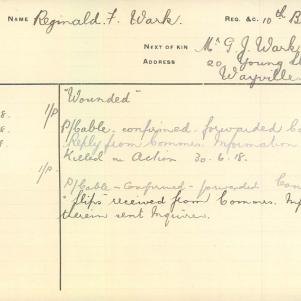 NAME Reginald. F. Wark. REG. &c. 10th B
NEXT OF KIN Mr G. J. Wark
ADDRESS 20, Young St
Wayville.
1/P "Wounded"
8. P/Cable. confirmed. forwarded C
8. Reply from Commrs. Information
8. Killed in Action 30. 6. 18.
1/P. P/Cable - Confirmed - forwarded Com
"Slips" received from Commrs. Inf
therein sent Inquirer.